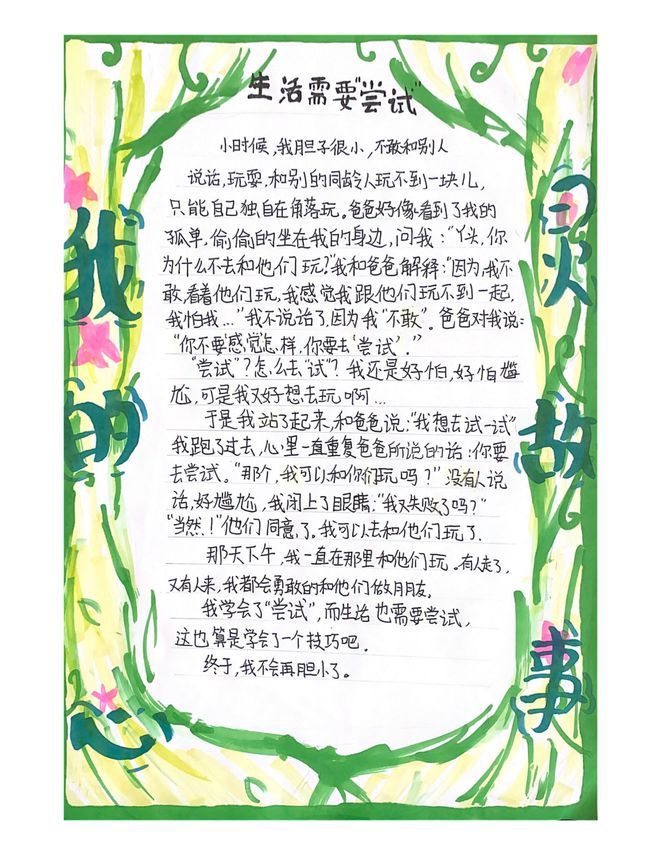 生活需要"尝试"
小时候,我胆子很小,不敢和别人
说话,玩耍,和别的同龄人玩不到一块儿,
只能自己独自在角落玩。爸爸好像看到了我的
孤单,偷偷的坐在我的身边,问我:"丫头,你
为什么不去和他们玩?"我和爸爸解释:"因为,我不
敢,看着他们玩,我感觉我跟他们玩不到一起,
我怕我…"我不说话了,因为我"不敢"。爸爸对我说:
"你不要'感觉'怎样,你要去'尝试'。"
"尝试"?怎么去"试"?我还是好怕,好怕尴
尬,可是我又好想去玩啊…
于是我站了起来,和爸爸说:"我想去试一试"
我跑了过去,心里一直重复爸爸所说的话:你要
去尝试。"那个,我可以和你们玩吗?"没有人说
话,好尴尬,我闭上了眼睛:"我又失败了吗?"
"当然!"他们同意了。我可以去和他们玩了.
那天下午,我一直在那里和他们玩。有人走了,
又有人来,我都会勇敢的和他们做朋友.
我学会了"尝试",而生活也需要尝试,
这也算是学会了一个技巧吧.
终于,我不会再胆小了。
我的心
灵故事